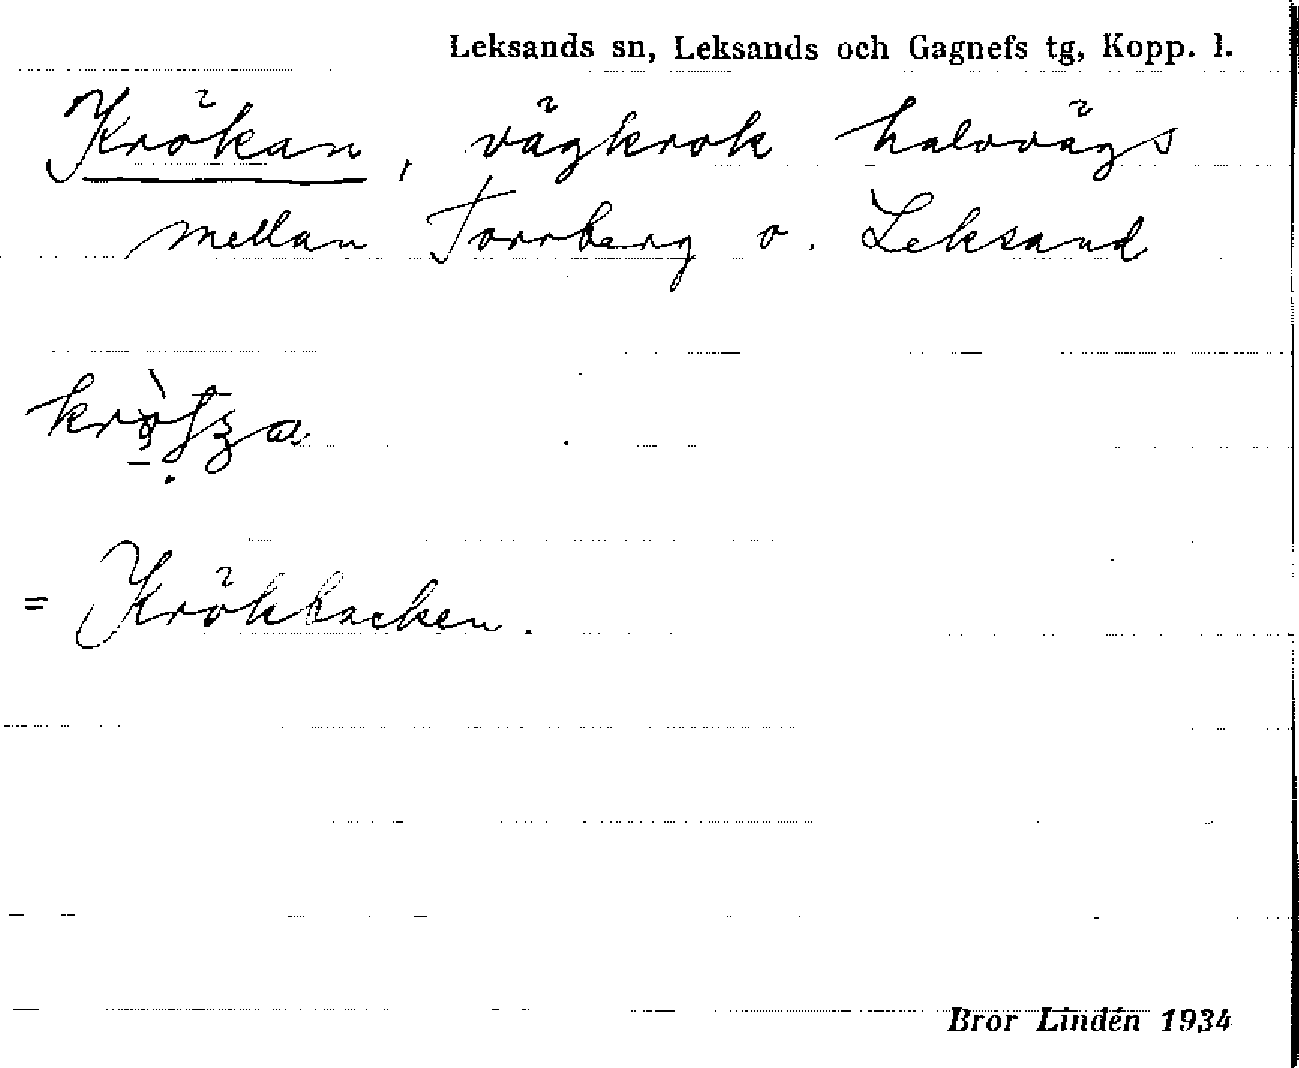 Leksands sn, Leksands och Gagnefs tg, Kopp. l.
Krökan, vägkrok halvvägs
mellan Torrberg o. Leksand
= Krökbacken.
Bror Lindén 1934